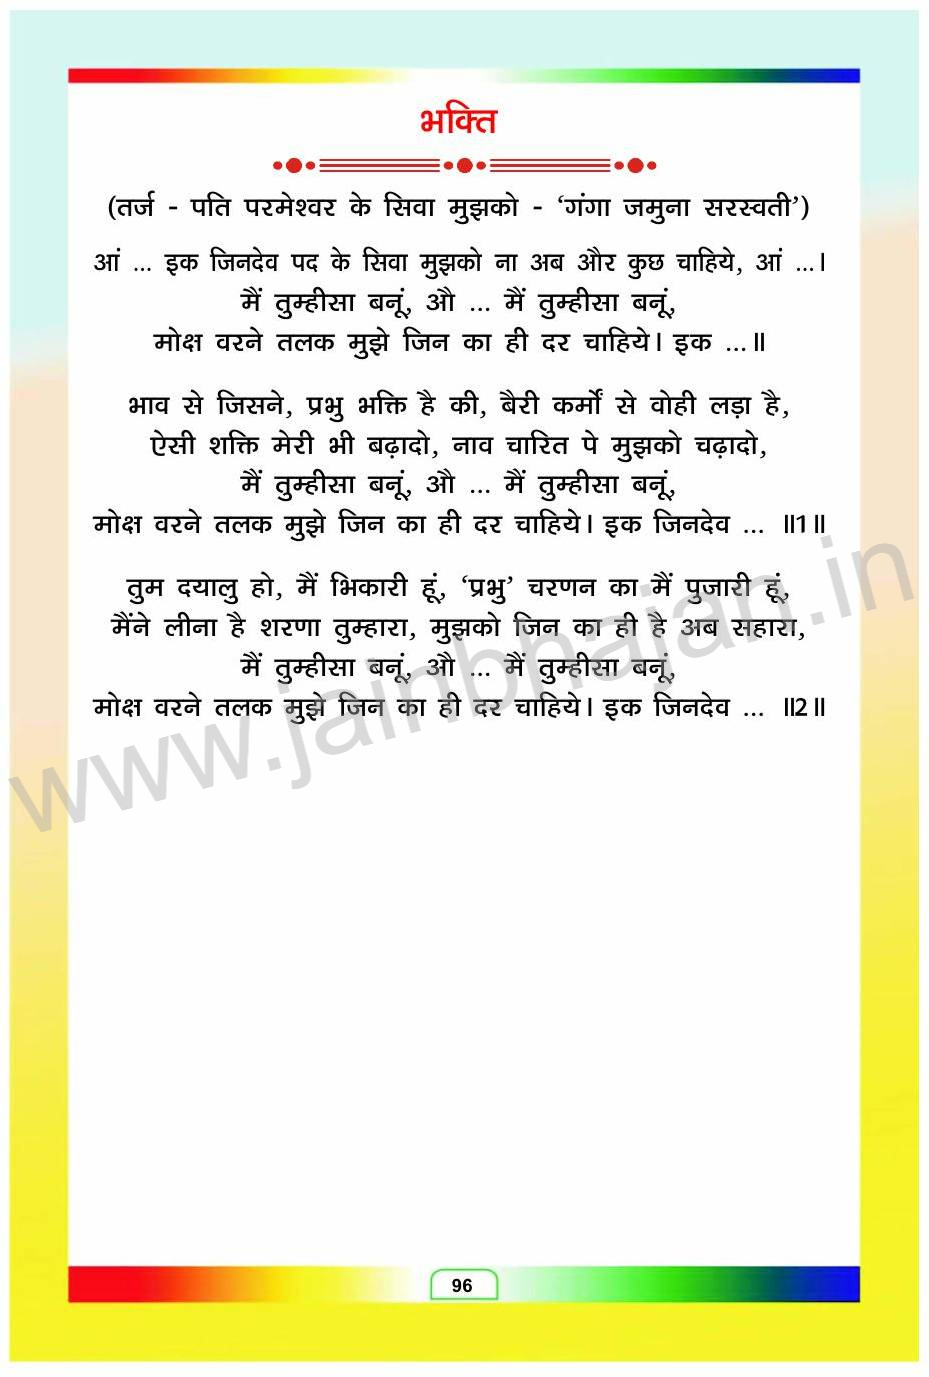 भक्ति
(तर्ज - पति परमेश्वर के सिवा मुझको - ‘गंगा जमुना सरस्वती’)
आं ... इक जिनदेव पद के सिवा मुझको ना अब और कुछ चाहिये, आं ...।
मैं तुम्हीसा बनूं, औ ... मैं तुम्हीसा बनूं,
मोक्ष वरने तलक मुझे जिन का ही दर चाहिये। इक ...॥
भाव से जिसने, प्रभु भक्ति है की, बैरी कर्मों से वोही लड़ा है,
ऐसी शक्ति मेरी भी बढ़ादो, नाव चारित पे मुझको चढ़ादो,
मैं तुम्हीसा बनूं, औ ... मैं तुम्हीसा बनूं,
मोक्ष वरने तलक मुझे जिन का ही दर चाहिये। इक जिनदेव ... ॥1॥
तुम दयालु हो, मैं भिकारी हूं, ‘प्रभु’ चरणन का मैं पुजारी हूं,
मैंने लीना है शरणा तुम्हारा, मुझको जिन का ही है अब सहारा,
मैं तुम्हीसा बनूं, औ ... मैं तुम्हीसा बनूं,
मोक्ष वरने तलक मुझे जिन का ही दर चाहिये। इक जिनदेव ... ॥2॥
www.jainbhajan.in
96